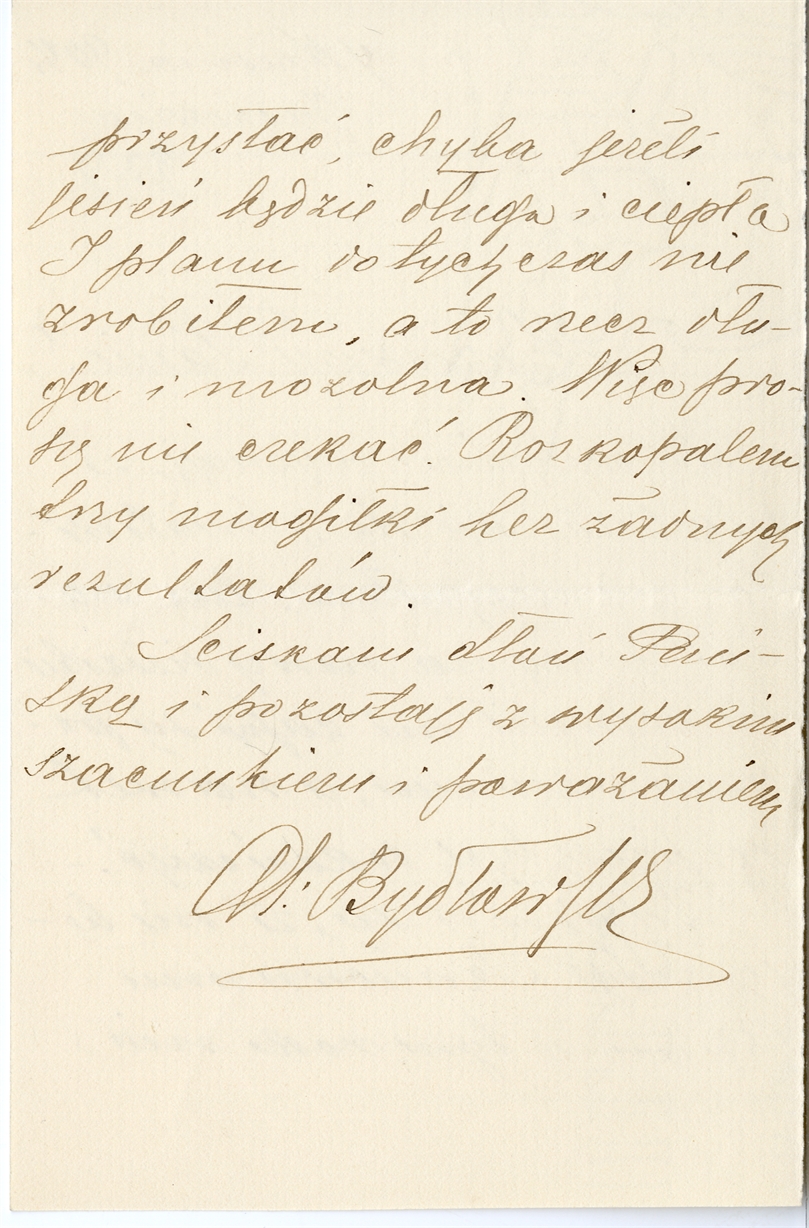 przysłać, chyba jeżeli
jesień będzie długa i ciepła
I planu dotychczas nie
zrobiłem, a to rzecz dłu-
ga i mozolna. Więc pro-
szę nie czekać. Rozkopałem
trzy mogiłki bez żadnych
rezultatów.
Ściskam dłoń Pań-
ską i pozostaję z wysokim
szacunkiem i poważaniem
Bydłowski